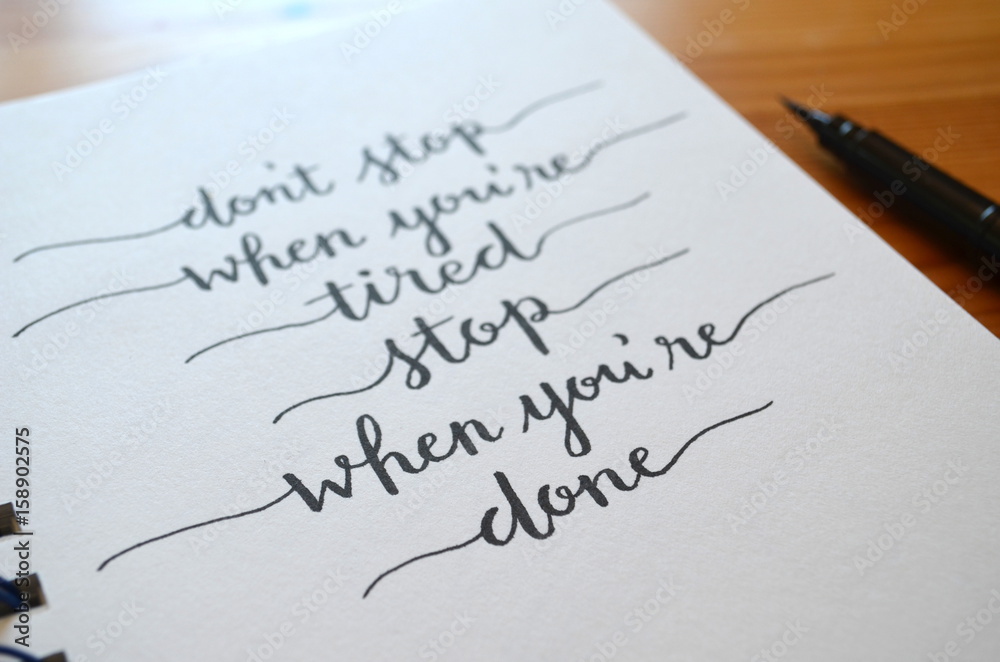 don't stop
when you're
tired
stop
when you're
done
Adobe Stock | #158902575